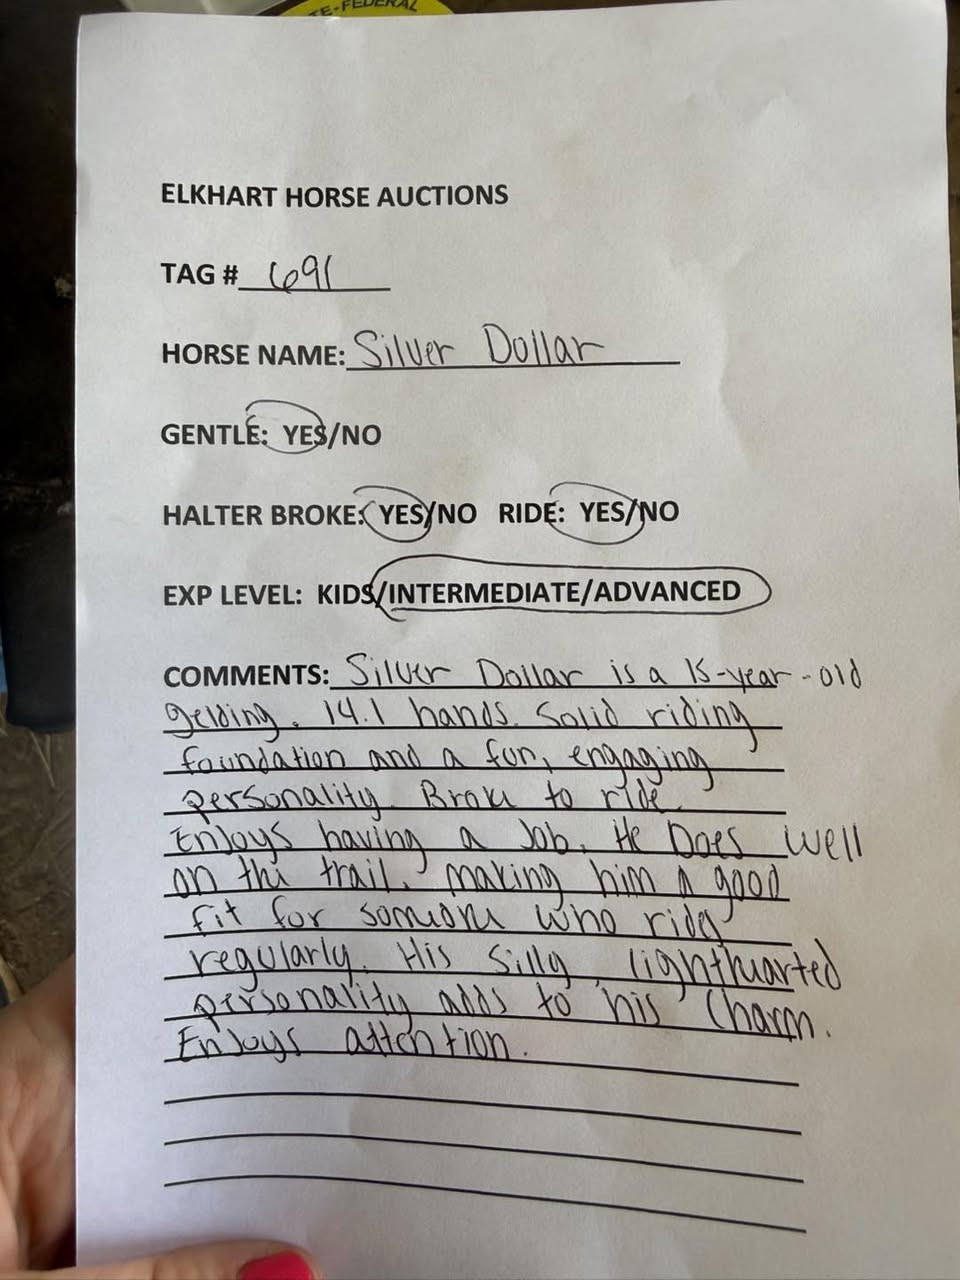 TE-FEDERAL
ELKHART HORSE AUCTIONS
TAG # 691
HORSE NAME: Silver Dollar
GENTLE: YES/NO
HALTER BROKE: YES/NO RIDE: YES/NO
EXP LEVEL: KIDS/INTERMEDIATE/ADVANCED
COMMENTS: Silver Dollar is a 15-year-old
gelding. 14.1 hands. Solid riding
foundation and a fun, engaging
personality. Broke to ride.
Enjoys having a Job. He Does well
on the trail, making him a good
fit for someone who rides
regularly. His Silly, lighthearted
personality adds to his Charm.
Enjoys attention.